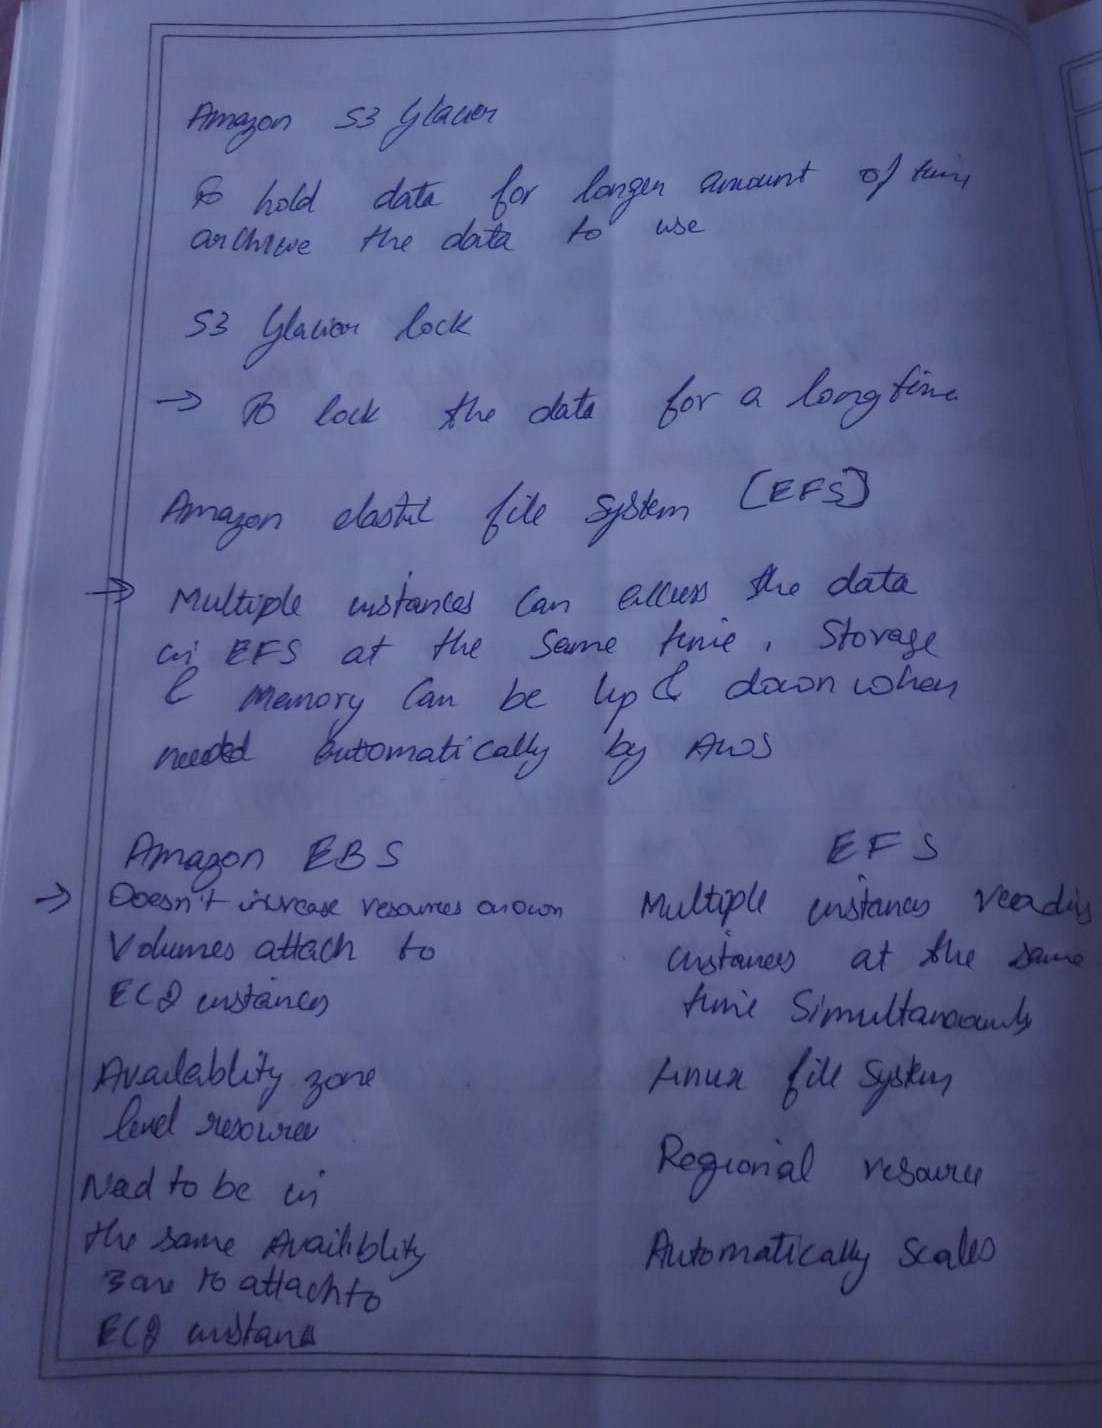 Amazon S3 Glacier
To hold data for longer amount of time
archive the data to use
S3 Glacier lock
→ To lock the data for a long time
Amazon elastic file system [EFS]
→ Multiple instances can access the data
in EFS at the same time. Storage
& memory can be up & down when
needed automatically by AWS
Amazon EBS
→ Doesn't increase resources on own
Volumes attach to
EC2 instances
Availablity zone
level resource
Need to be in
the same Availiblity
zone to attach to
EC2 instans
EFS
Multiple instances reading
instances at the same
time Simultaneously
Linux file system
Regional resource
Automatically scales